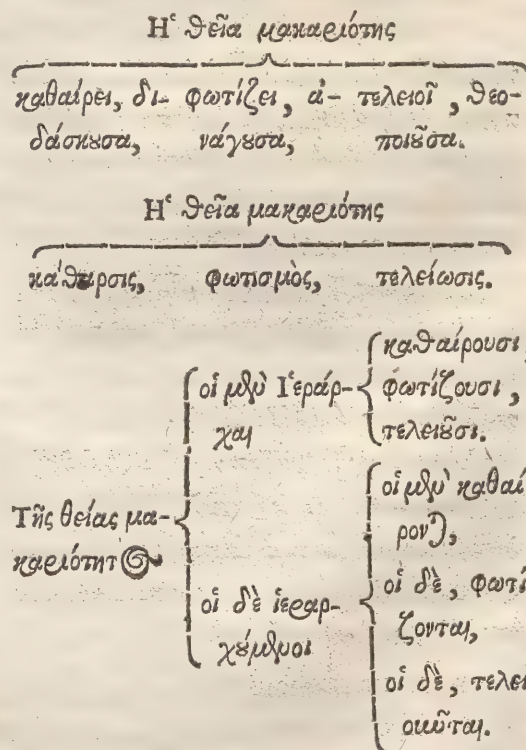 Ἡ ϑεῖα μακαριότης
καθαίρει, δι- φωτίζει, ἀ- τελειοῖ, ϑεο-
δάσκουσα, νάγουσα, ποιοῦσα.
Ἡ ϑεῖα μακαριότης
κάθαρσις, φωτισμὸς, τελείωσις.
Τῆς θείας μα-
καριότητος
οἱ μὲν Ἱεράρ-
χαι
καθαίρουσι,
φωτίζουσι,
τελειοῦσι.
οἱ δὲ ἱεραρ-
χούμενοι
οἱ μὲν καθαί
ρονται,
οἱ δὲ, φωτί
ζονται,
οἱ δὲ, τελει
οῦνται.